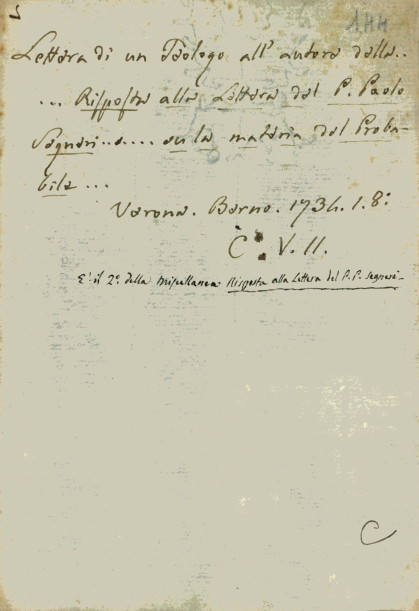 Lettera di un Teologo all' autore della..
... Risposta alla Lettera del P. Paolo
Segneri........ su la materia del Proba-
bile...
Verona. Berno. 1734. 1. 8:
C. V. 11.
E' il 2º. della Miscellanea Risposta alla Lettera del P. P. Segneri-
C